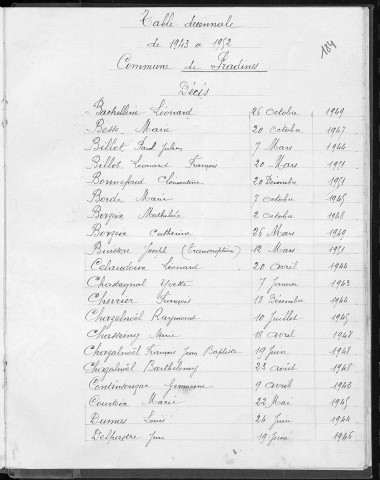 Table décennale
de 1943 à 1952
184
Commune de Pradines
Décès
Bachellerie Léonard 26 octobre 1949
Besse Marie 20 octobre 1947
Billot Paul Julien 7 Mars 1944
Billot Léonard François 20 Mars 1951
Bonnefond Clémentine 20 Décembre 1951
Borde Marie 7 octobre 1945
Borzeix Mathilde 2 octobre 1948
Borzeix Catherine 26 Mars 1949
Buisson Joseph (transcription) 12 Mars 1951
Cebaudoin Léonard 20 avril 1944
Chastagnol Yvette 7 Janvier 1943
Cherrier François 18 Décembre 1944
Chazalnoël Raymond 10 Juillet 1945
Chasseing Marie 18 avril 1947
Chazalnoël François Jean Baptiste 19 Juin 1948
Chazalnoël Barthélemy 23 août 1948
Continsouzas 9 avril
Courteix Marie 22 Mai 1945
Dumas Louis 24 Juin 1944
Delpastre 19 Juin 1946